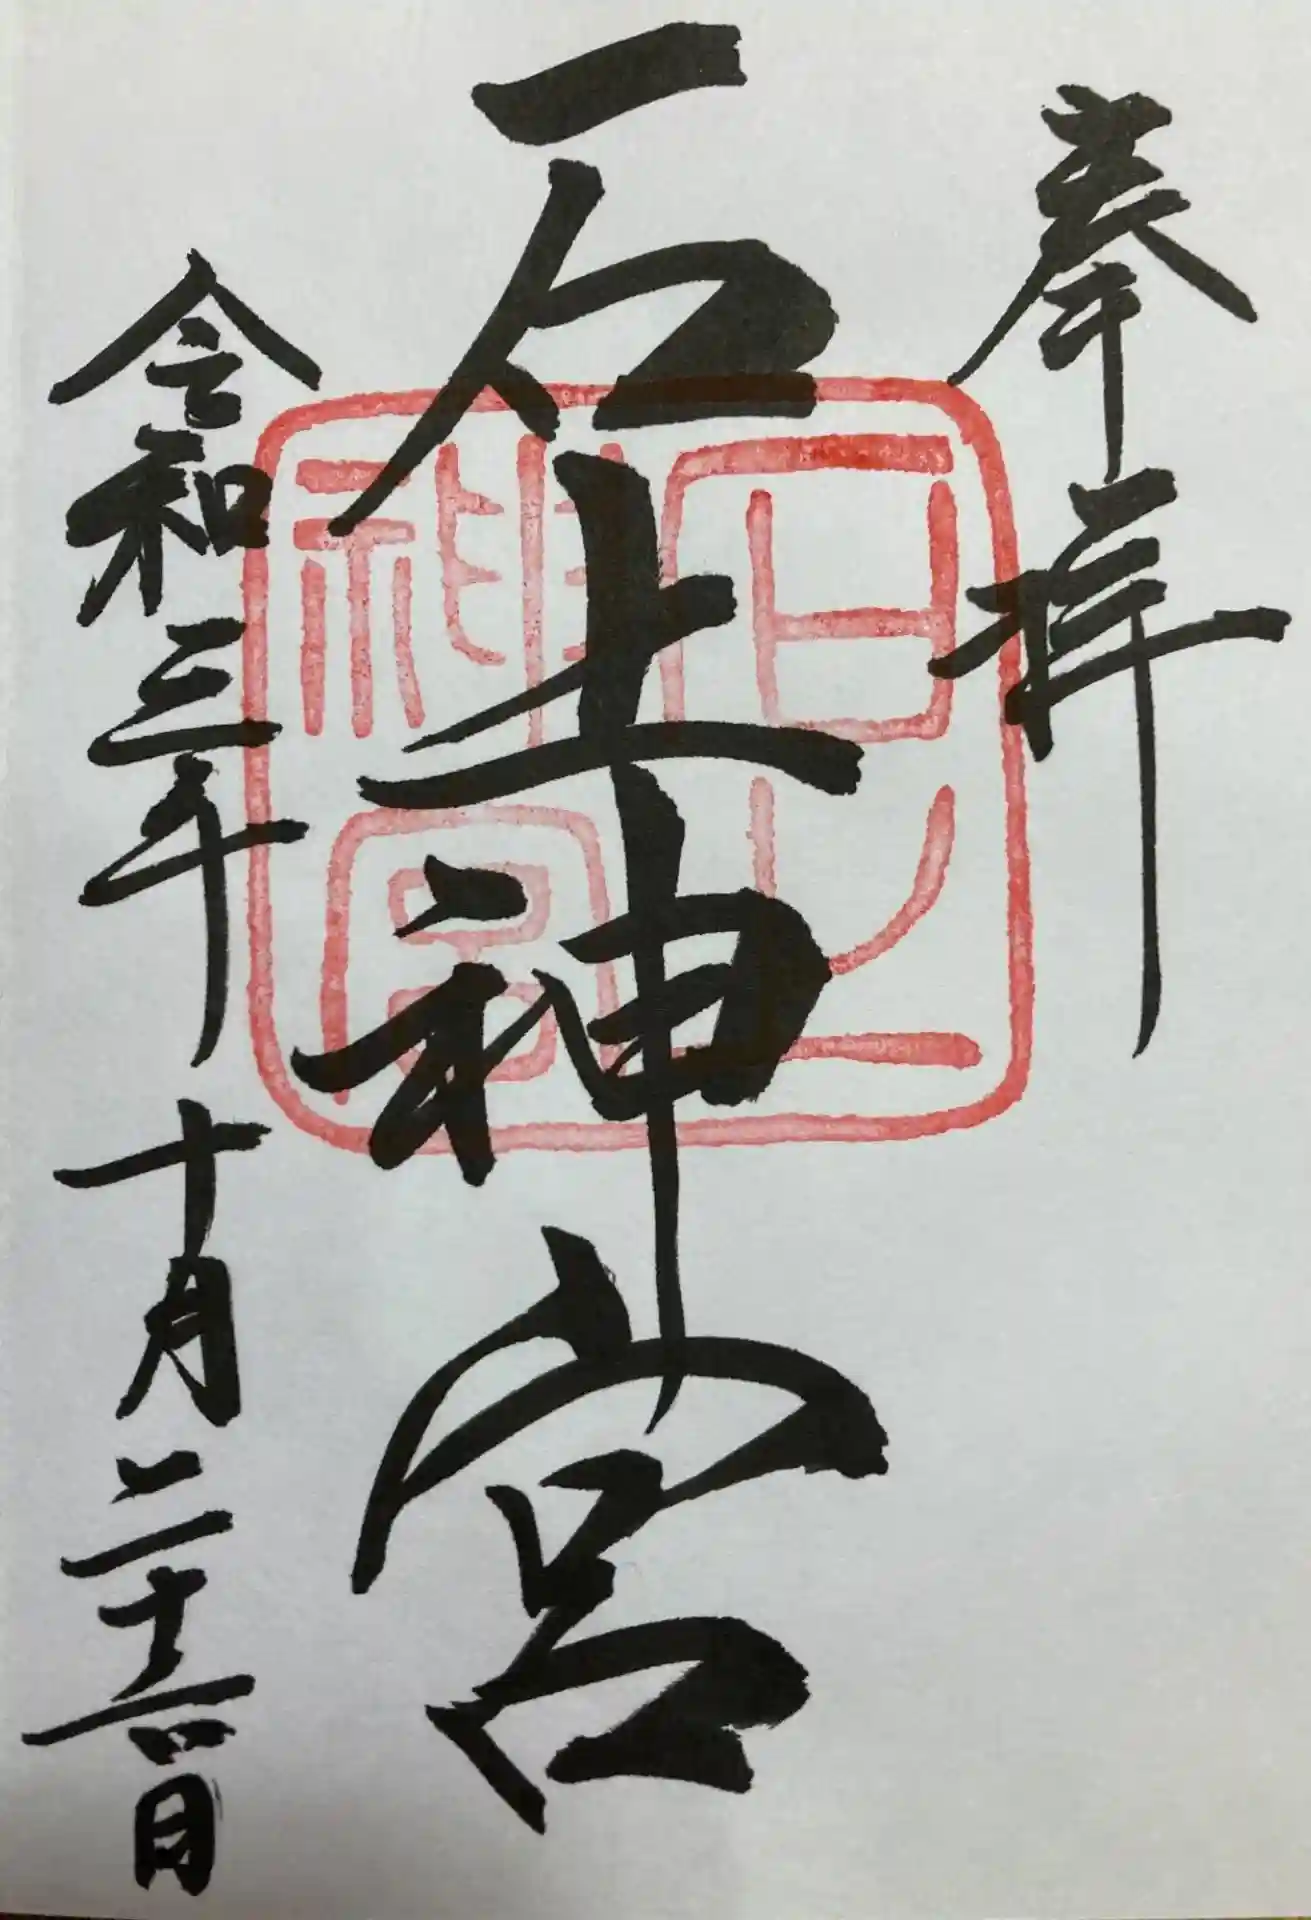 奉拝
石上神宮
石上
神宮
令和三年十月二十日